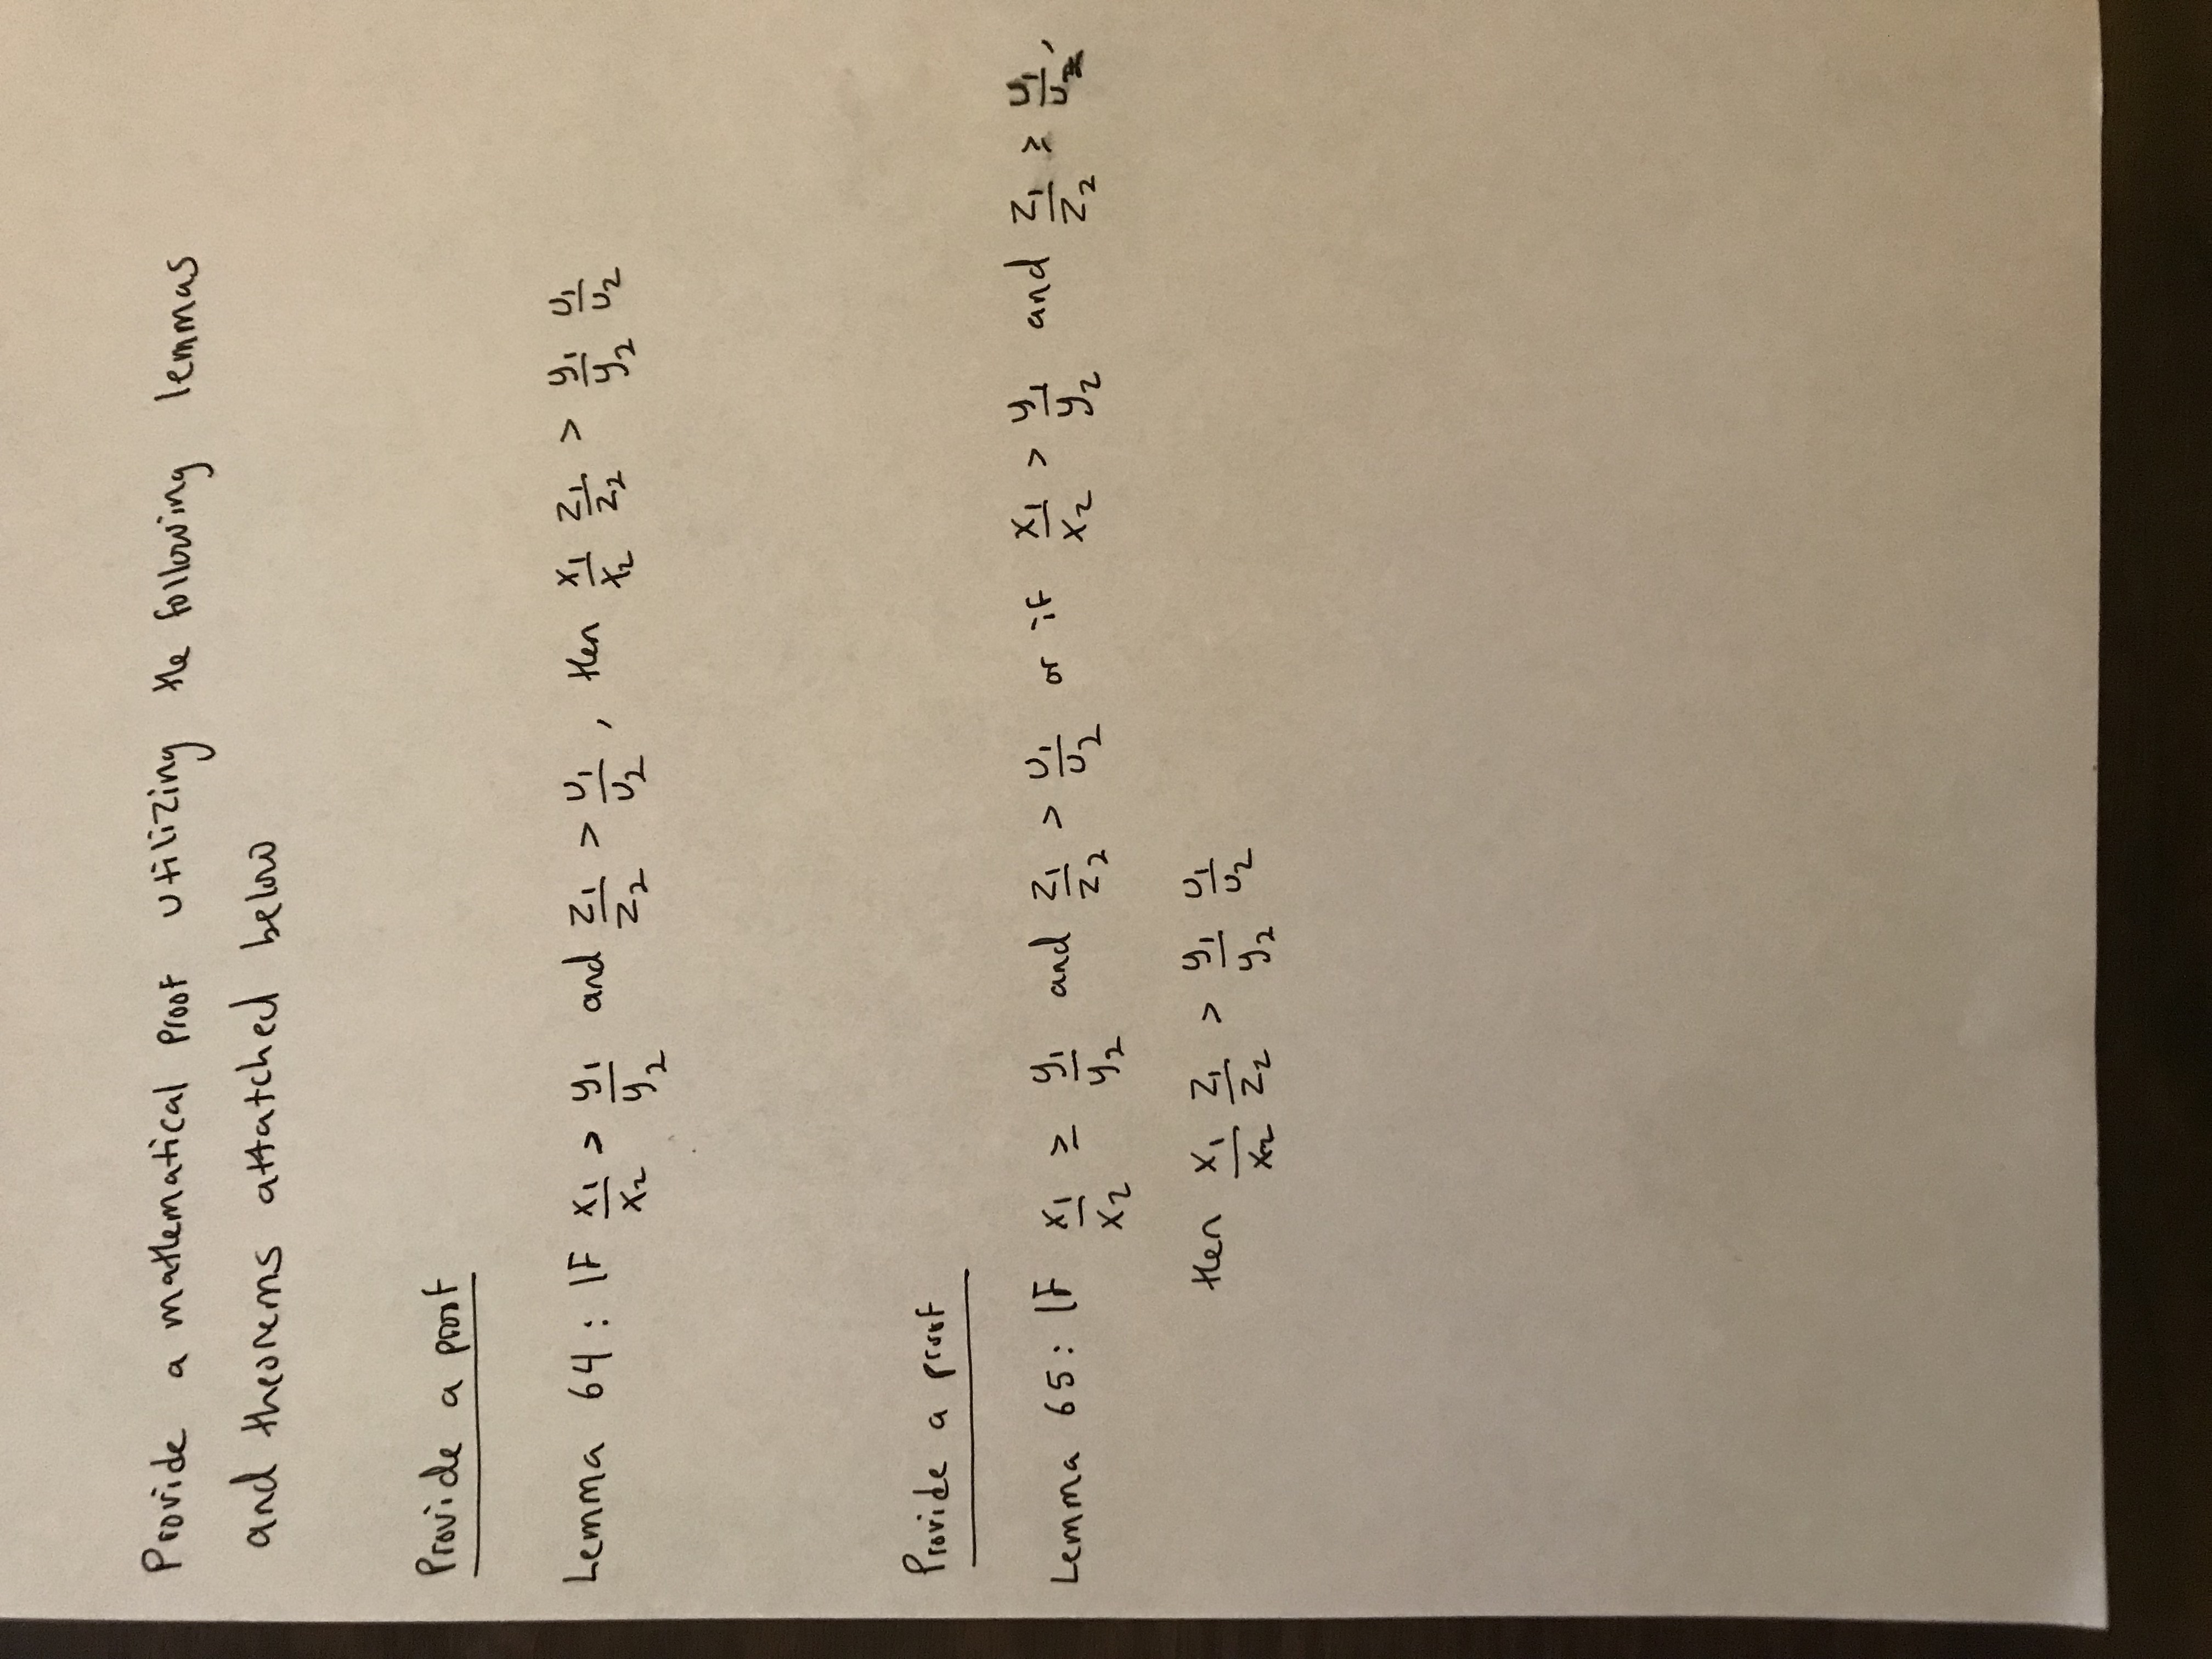 Provide a mathematical proof utilizing the following lemmas
and theorems attatched below
Provide a proof
Lemma 64: If x₁/x₂ > y₁/y₂ and z₁/z₂ > u₁/u₂, then x₁/x₂ z₁/z₂ > y₁/y₂ u₁/u₂
Provide a proof
Lemma 65: If x₁/x₂ ≥ y₁/y₂ and z₁/z₂ > u₁/u₂ or if x₁/x₂ > y₁/y₂ and z₁/z₂ ≥ u₁/u₂,
then x₁/x₂ z₁/z₂ > y₁/y₂ u₁/u₂